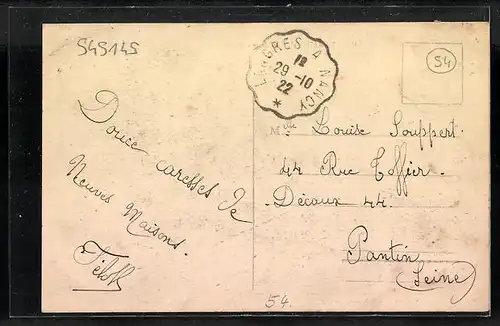 545145
LANGRES A NANCY
12
29 -10
22
54
Douce caresses de
Neuves Maisons.
Mlle Louise Souppert.
44 Rue
44.
Pantin
(Seine)
54.